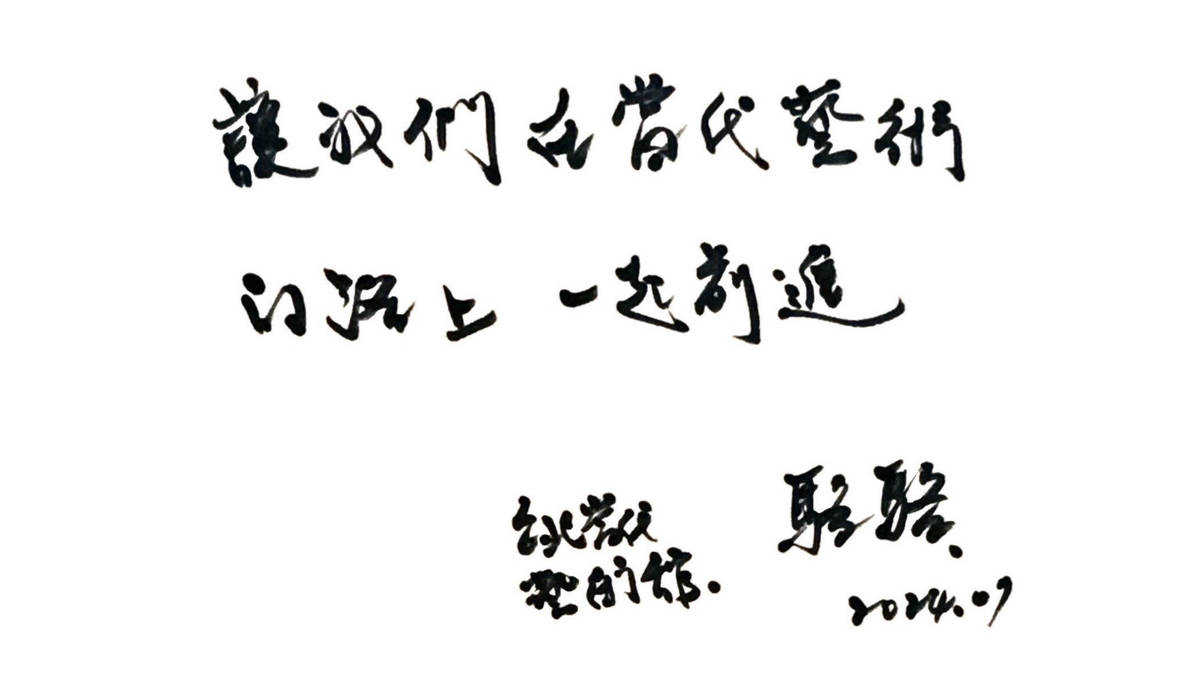 讓我們在當代藝術
的路上 一起前進
台北當代
藝術館.
駱駱.
2024.07